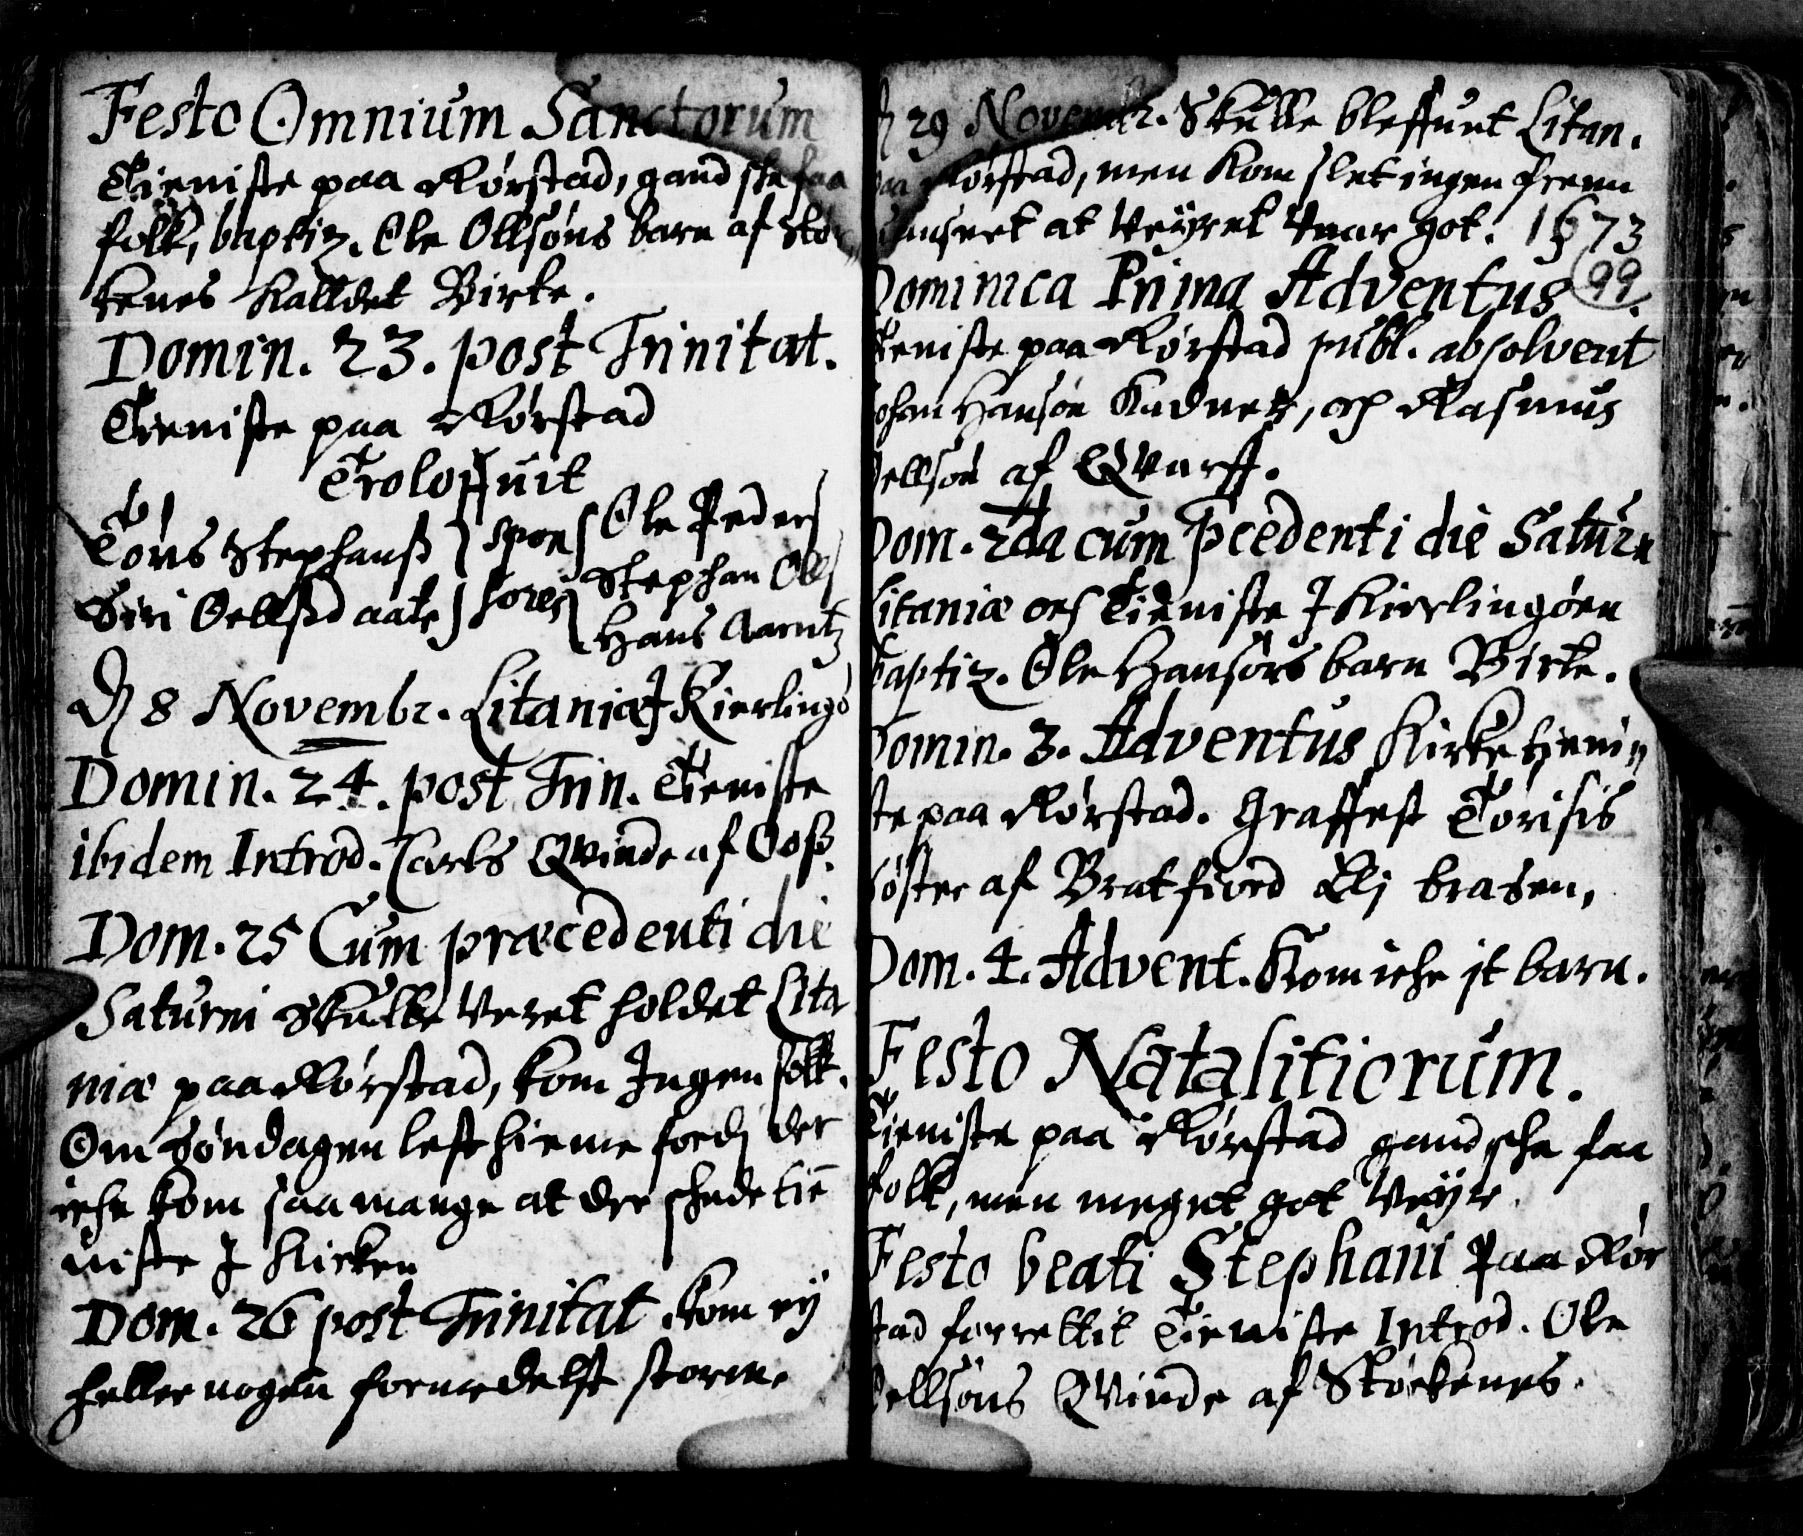 Festo Omnium Sanctorum
Tieniste paa Rørstad, gand ske faa
folk, baptiz. Ole Ollsøns barn af Stør
kenes kalldet Birte.
Domin. 23. post Trinitat.
Tieniste paa Rørstad
Troloffuit
Tøris Stephanß } spons { Ole Peders
Siri Oellßdaate } sores { Stephan Olls
Hans Aarntz
D 8 Novembr. Litaniæ J Kierlingø
Domin. 24. post Trin. Tieniste
ibidem Introd. Carls Qvinde af Ooß.
Dom. 25 Cum præcedenti die
Saturni Skulle Veret holdet Lita
niæ paa Rørstad, kom Ingen folk.
Om Søndagen lest hieme fordj der
iche kom saa mange at der skede tie
niste J Kirken
Dom. 26 post Trinitat. kom ey
heller nogen formedelst storm.
29 Novembr. Skulle bleffuet Litan.
paa Rørstad, men kom slet ingen frem
uanseet at Veyret Vaar got. 1673
99
Dominica Prima Adventus.
Tieniste paa Rørstad publ. absolverit
Johan Hansøn, och Rasmus
Oellsøn af Qvarff.
Dom. 2da cum pcedenti die Saturn
Litaniæ oc Tieniste J Kierlingøen
baptiz. Ole Hansøns barn Birte.
Domin. 3. Adventus Kirke tieni
ste paa Rørstad. Graffest Tørisis
Søster af Bratfiord Elj
Dom. 4. Advent. Kom iche it barn.
Festo Natalitiorum.
Tieniste paa Rørstad gandsche faa
folk, men meget got Veyr.
Festo beati Stephani Paa Rør
stad forrettit Tieniste Introd. Ole
Oellsøns Qvinde af Størkenes.